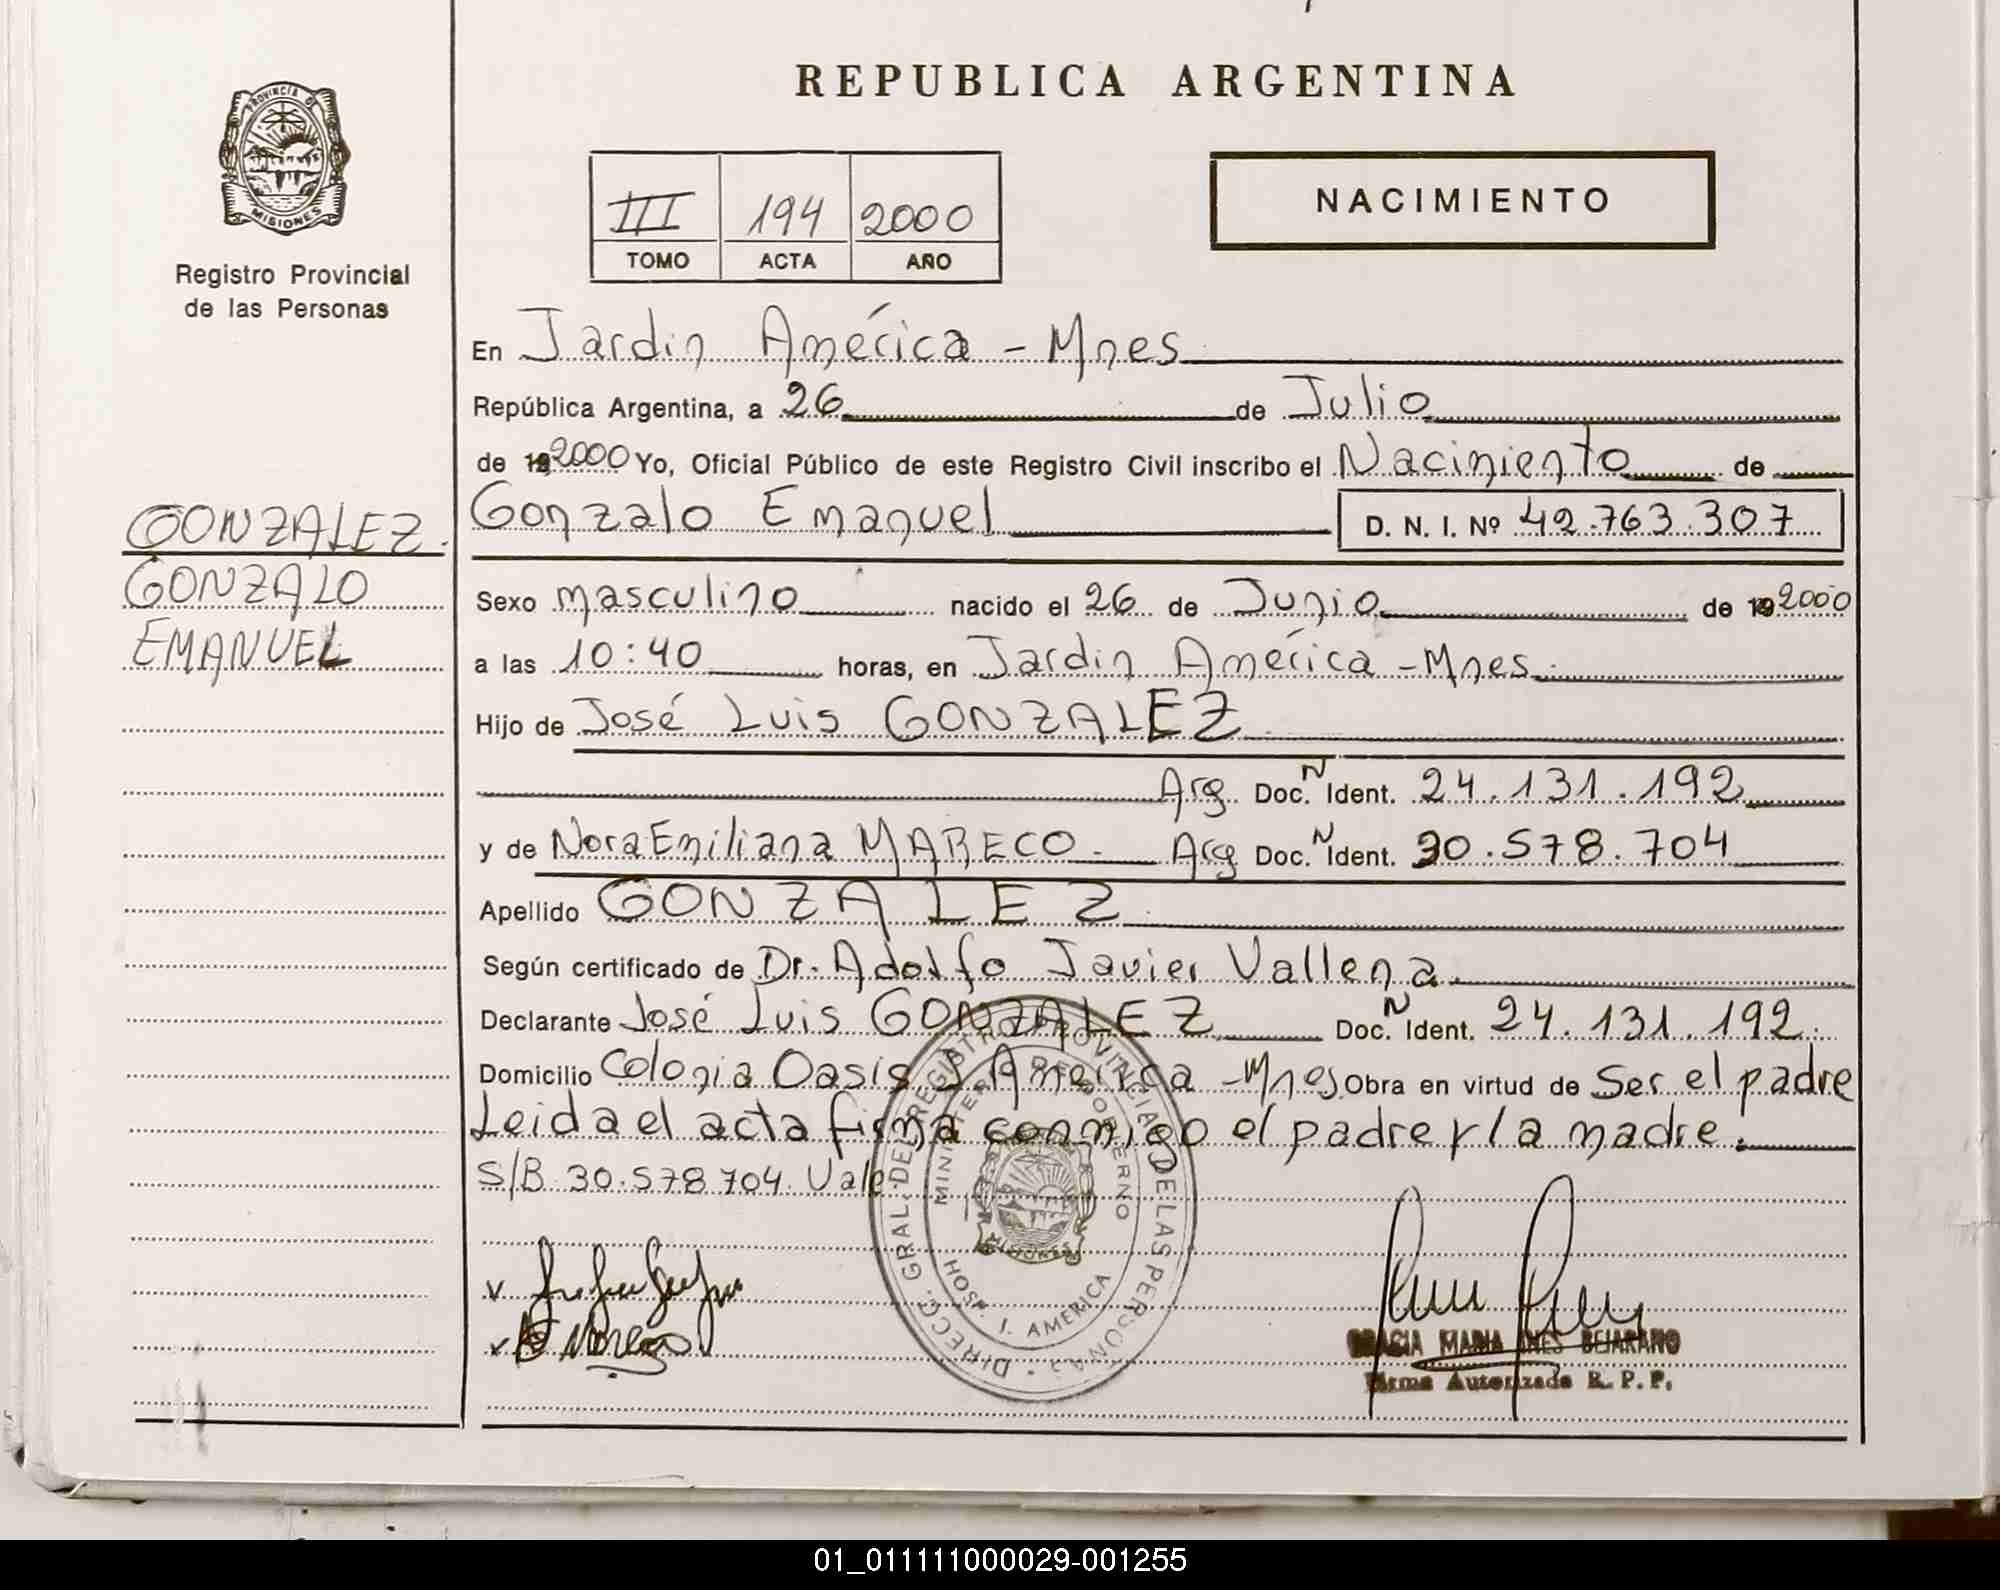 REPUBLICA ARGENTINA
PROVINCIA DE
MISIONES
Registro Provincial
de las Personas
III 194 2000
TOMO ACTA AÑO
NACIMIENTO
En Jardin América - Mnes
República Argentina, a 26 de Julio
de 19 2000 Yo, Oficial Público de este Registro Civil inscribo el Nacimiento de
Gonzalo Emanuel D. N. I. Nº 42.763.307
GONZALEZ.
GONZALO
EMANUEL
Sexo masculino nacido el 26 de Junio de 19 2000
a las 10:40 horas, en Jardin América - Mnes.
Hijo de José Luis GONZALEZ
Arg Doc. N Ident. 24.131.192
y de Nora Emiliana MARECO. Arg Doc. N Ident. 30.578.704
Apellido GONZALEZ.
Según certificado de Dr. Adolfo Javier Vallena
Declarante José Luis GONZALEZ Doc. N Ident. 24.131.192.
Domicilio Colonia Oasis J América - Mnes Obra en virtud de Ser el padre
Leida el acta firma conmigo el padre y la madre.
S/B 30.578.704. Vale
DIRECC. GRAL. DEL REGISTRO PROVINCIAL DE LAS PERSONAS
MINISTERIO DE GOBIERNO
MISIONES
HOSP. J. AMERICA
GRACIA MARIA INES BEJARANO
Firma Autorizada R. P. P.
01_011111000029-001255